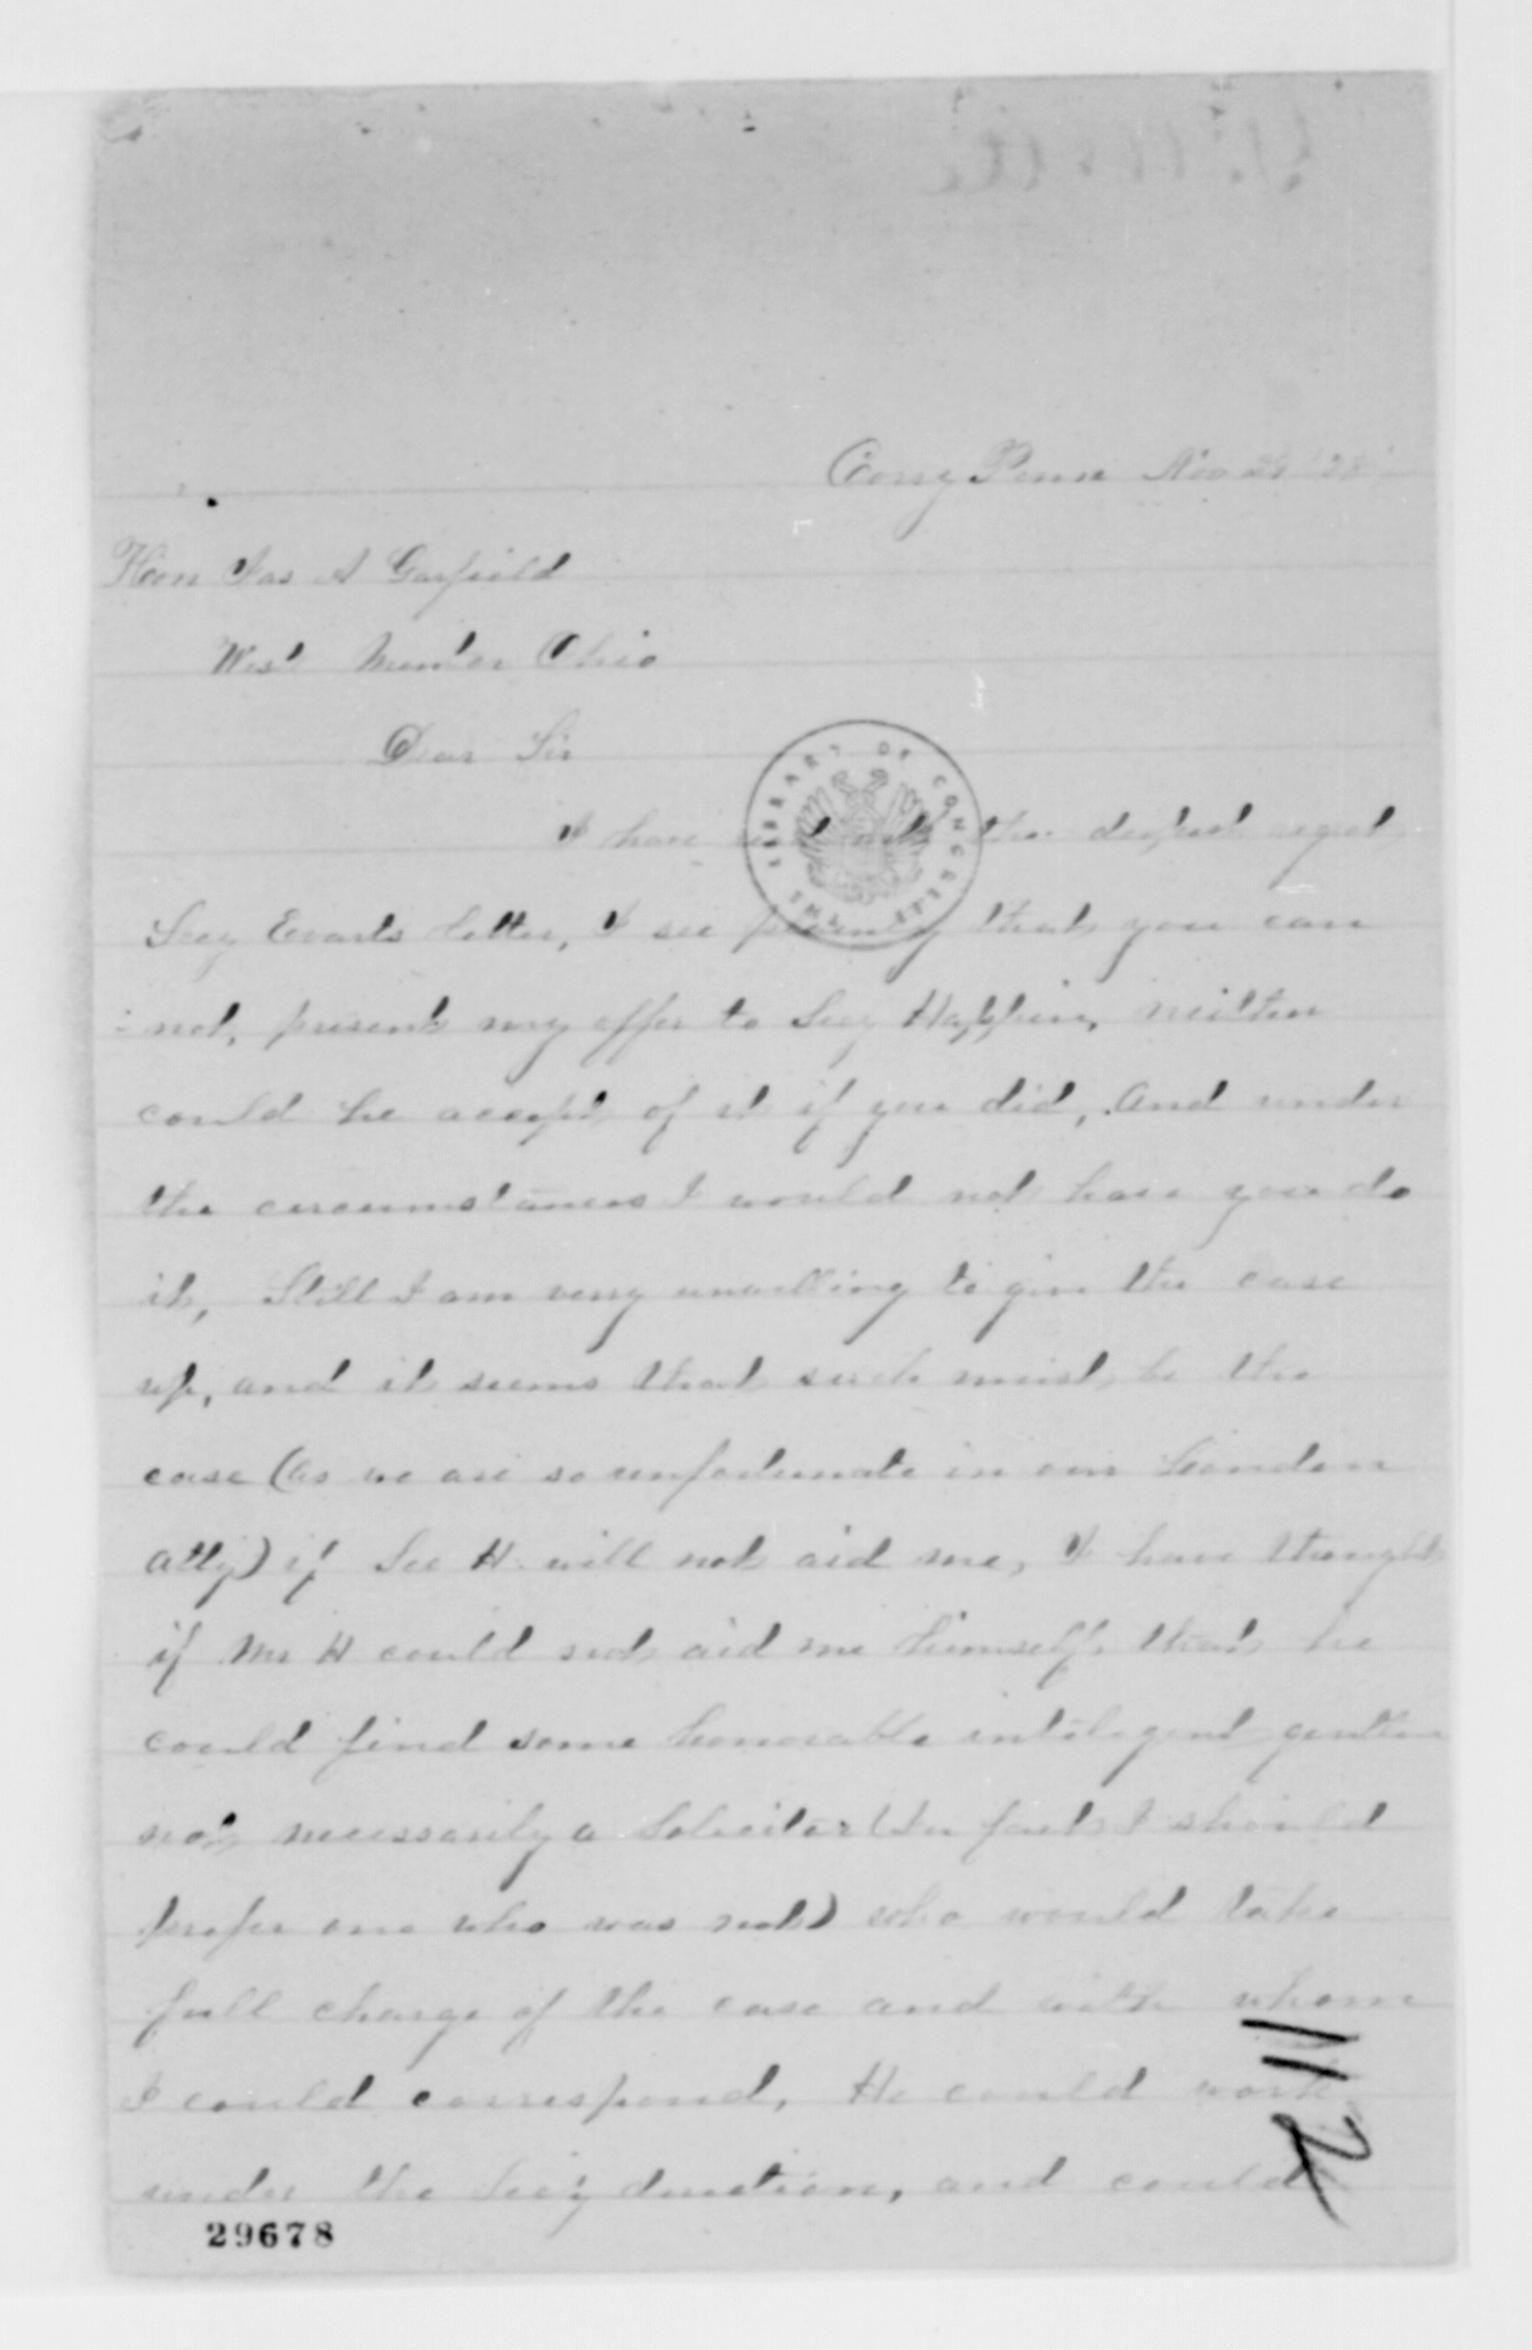 Corry Penn Nov
Hon Jas A Garfield
West Mentor Ohio
Dear Sir
THE LIBRARY OF CONGRESS
I have read with the deepest regret
Secy Evarts letter, I see plainly that you can
not, present my offer to Secy Hoppin, neither
could he accept of it if you did, And under
the circumstances I would not have you do
it, Still I am very unwilling to give the case
up, and it seems that such must be the
case (as we are so unfortunate in our London
atty) if Sec H. will not aid me, I have thought
if Mr H could not aid me himself that he
could find some honorable inteligent gentlem
not necessarily a Solicitor (In fact I should
prefer one who was not) who would take
full charge of the case and with whom
I could correspond, He could work
under the Secy direction, and could
29678